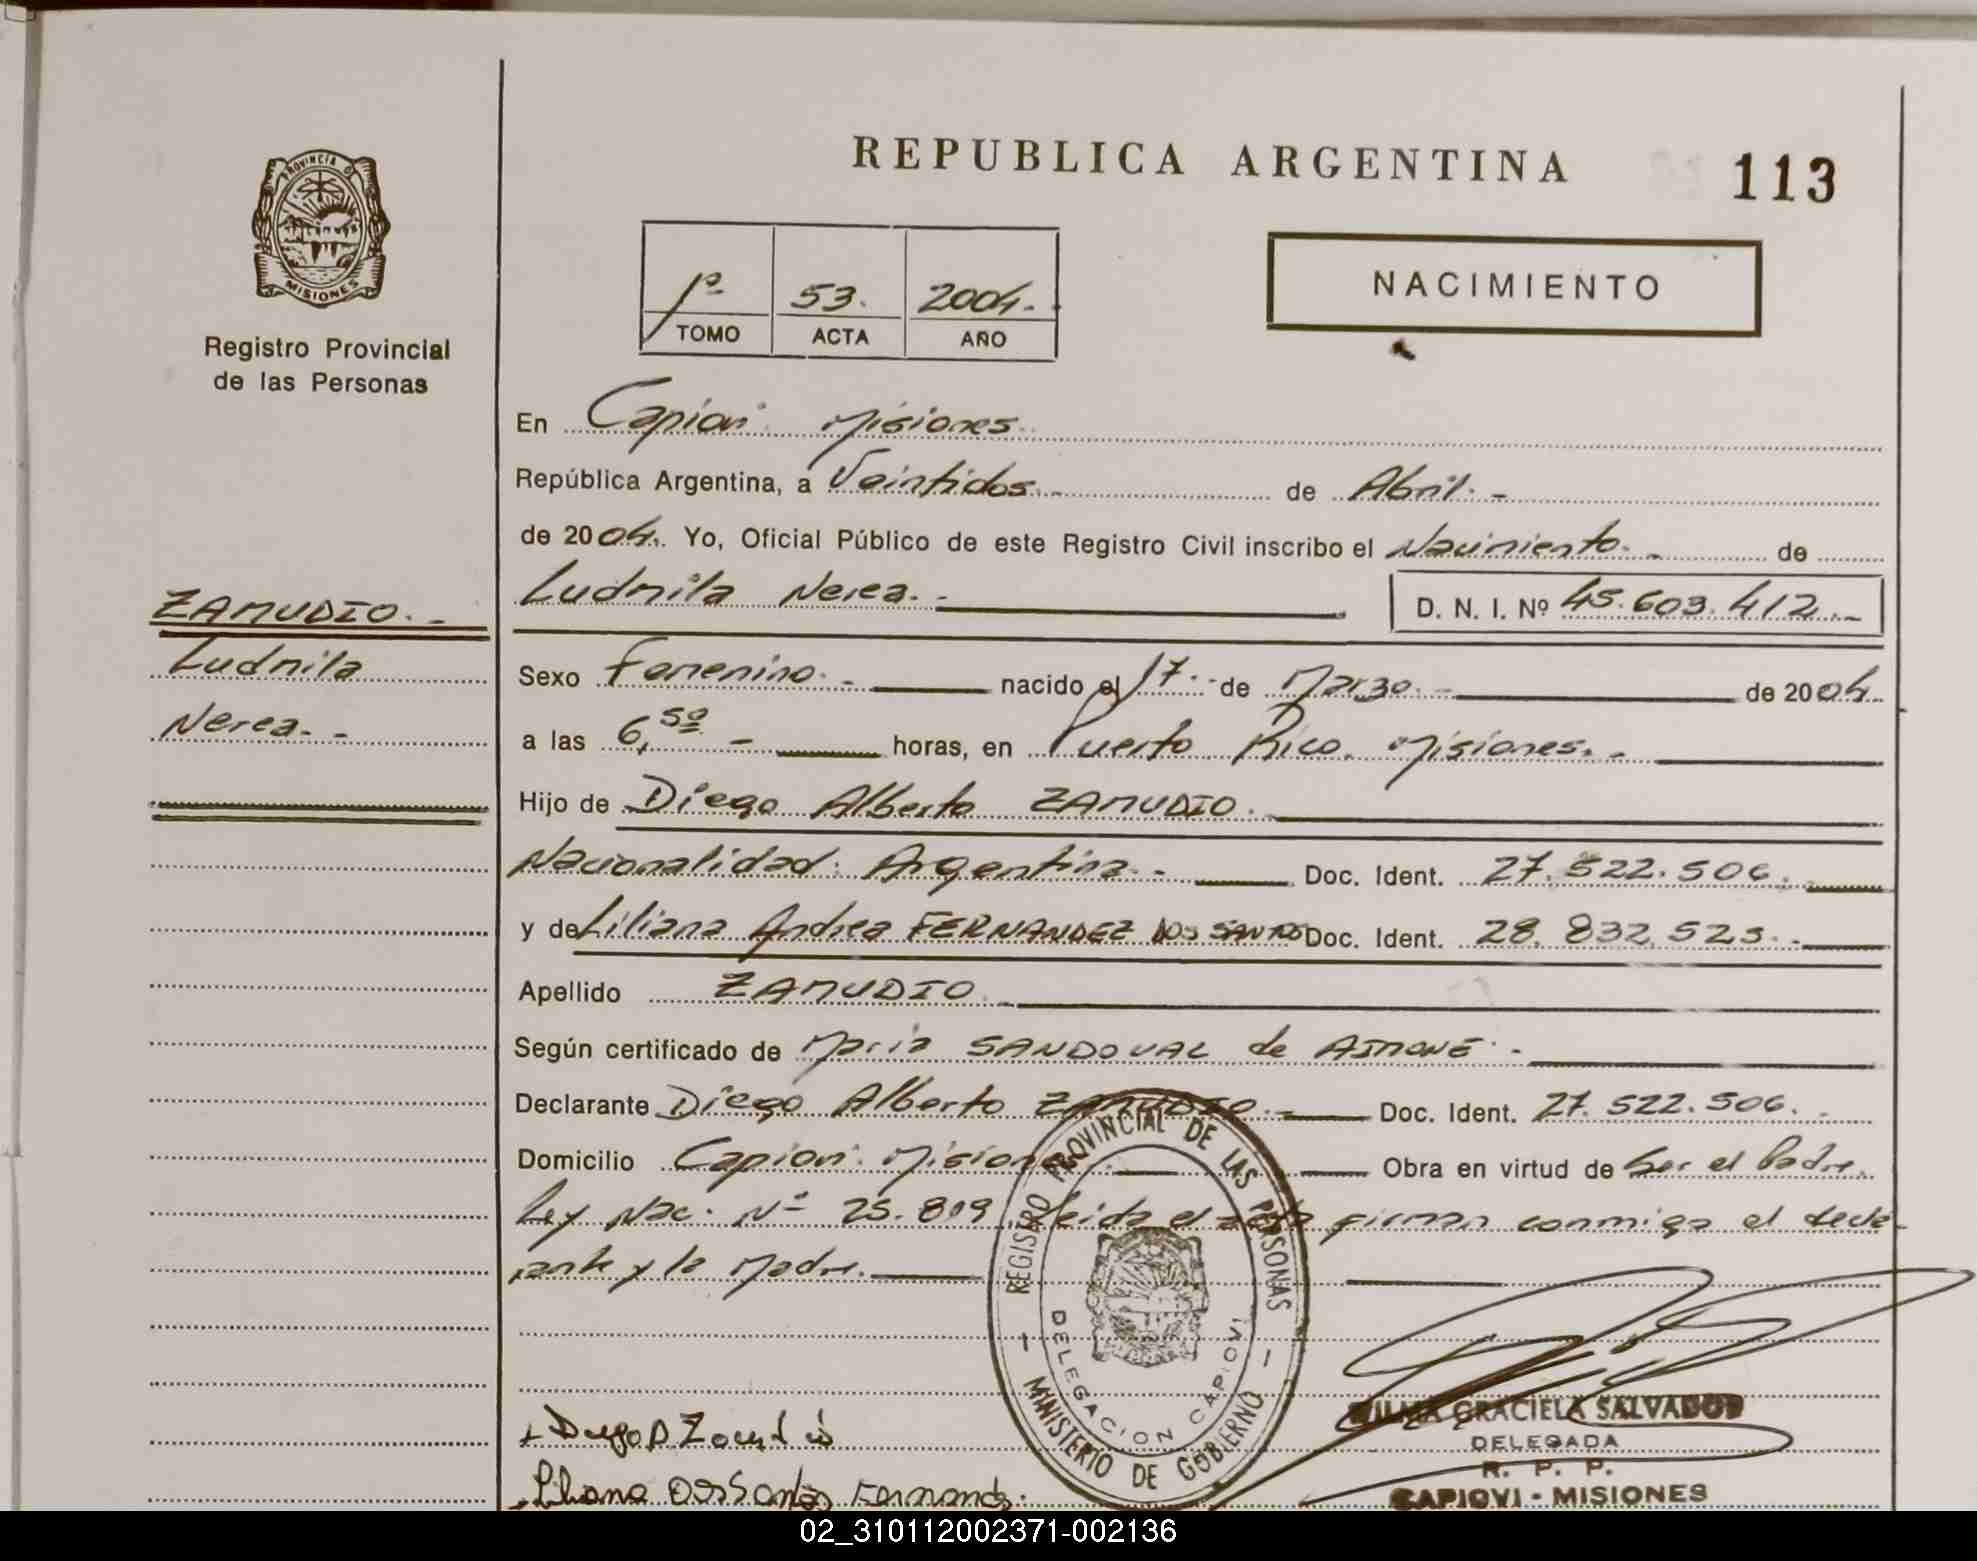 REPUBLICA ARGENTINA
113
PROVINCIA DE
MISIONES
Registro Provincial
de las Personas
1º 53. 2004.
TOMO ACTA AÑO
NACIMIENTO
En Capiovi Misiones
República Argentina, a Veintidos.- de Abril.-
de 2004. Yo, Oficial Público de este Registro Civil inscribo el Nacimiento.- de
Ludmila Nerea.- D. N. I. Nº 45.603.412.-
ZAMUDIO.-
Ludmila
Nerea.-
Sexo Femenino.- nacido el 17.- de Marzo.- de 2004.
a las 6,50 - horas, en Puerto Rico. Misiones.-
Hijo de Diego Alberto ZAMUDIO.
Nacionalidad: Argentina.- Doc. Ident. 27.522.506.
y de Liliana Andrea FERNANDEZ DOS SANTOS Doc. Ident. 28.832.523.-
Apellido ZAMUDIO.
Según certificado de Maria SANDOVAL de AIMONE.-
Declarante Diego Alberto ZAMUDIO.- Doc. Ident. 27.522.506.-
Domicilio Capiovi. Misiones. Obra en virtud de Ser el Padre.
Ley Nac. Nº 25.819. Leida el acta firman conmigo el decla
rante y la Madre.
REGISTRO PROVINCIAL DE LAS PERSONAS
DELEGACION CAPIOVI
- MINISTERIO DE GOBIERNO -
Diego A Zamudio
Liliana Dos Santos Fernandez
GRACIELA SALVADOR
DELEGADA
R. P. P.
CAPIOVI - MISIONES
02_310112002371-002136